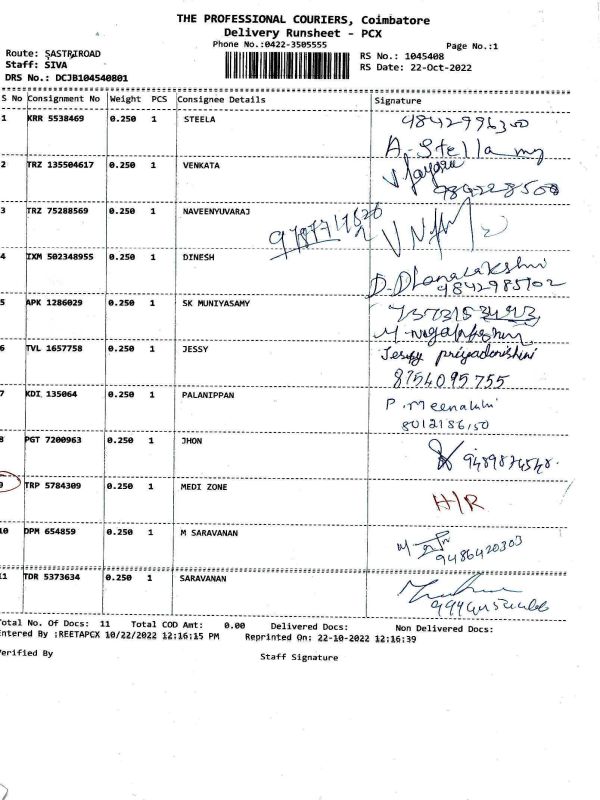 THE PROFESSIONAL COURIERS, Coimbatore
Delivery Runsheet - PCX
Phone No.:0422-3505555
Page No.:1
Route: SASTRIROAD
Staff: SIVA
DRS No.: DCJB104540801
RS No.: 1045408
RS Date: 22-Oct-2022
S No Consignment No Weight PCS Consignee Details Signature
1 KRR 5538469 0.250 1 STEELA
A. Stella my
2 TRZ 135504617 0.250 1 VENKATA
3 TRZ 75288569 0.250 1 NAVEENYUVARAJ
4 IXM 502348955 0.250 1 DINESH
D. Dhanalakshmi
9842985702
5 APK 1286029 0.250 1 SK MUNIYASAMY
6 TVL 1657758 0.250 1 JESSY
Jessy priyadarishini
8754095755
7 KDI 135064 0.250 1 PALANIPPAN
P. Meenakshi
8012186150
8 PGT 7200963 0.250 1 JHON
9489874548.
9 TRP 5784309 0.250 1 MEDI ZONE
H/R
10 DPM 654859 0.250 1 M SARAVANAN
9486420303
11 TDR 5373634 0.250 1 SARAVANAN
Total No. Of Docs: 11 Total COD Amt: 0.00 Delivered Docs: Non Delivered Docs:
Entered By :REETAPCX 10/22/2022 12:16:15 PM Reprinted On: 22-10-2022 12:16:39
Verified By
Staff Signature